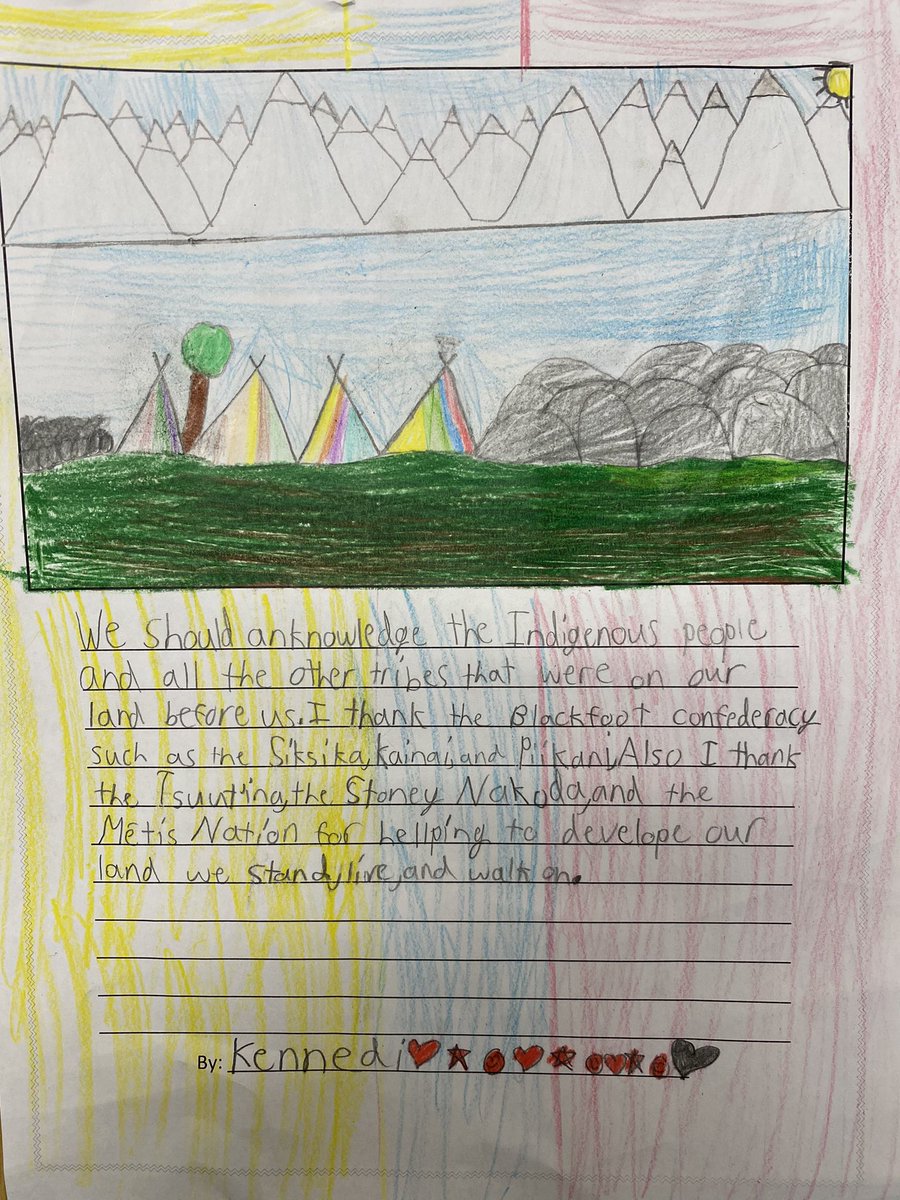 We should anknowledge the Indigenous people
and all the other tribes that were on our
land before us. I thank the Blackfoot confederacy
such as the Siksika, Kainai, and Piikani, Also I thank
the Tsuut'ina, the Stoney Nakoda, and the
Mētis Nation for hellping to develope our
land we stand, live, and walk on.
By: Kennedi